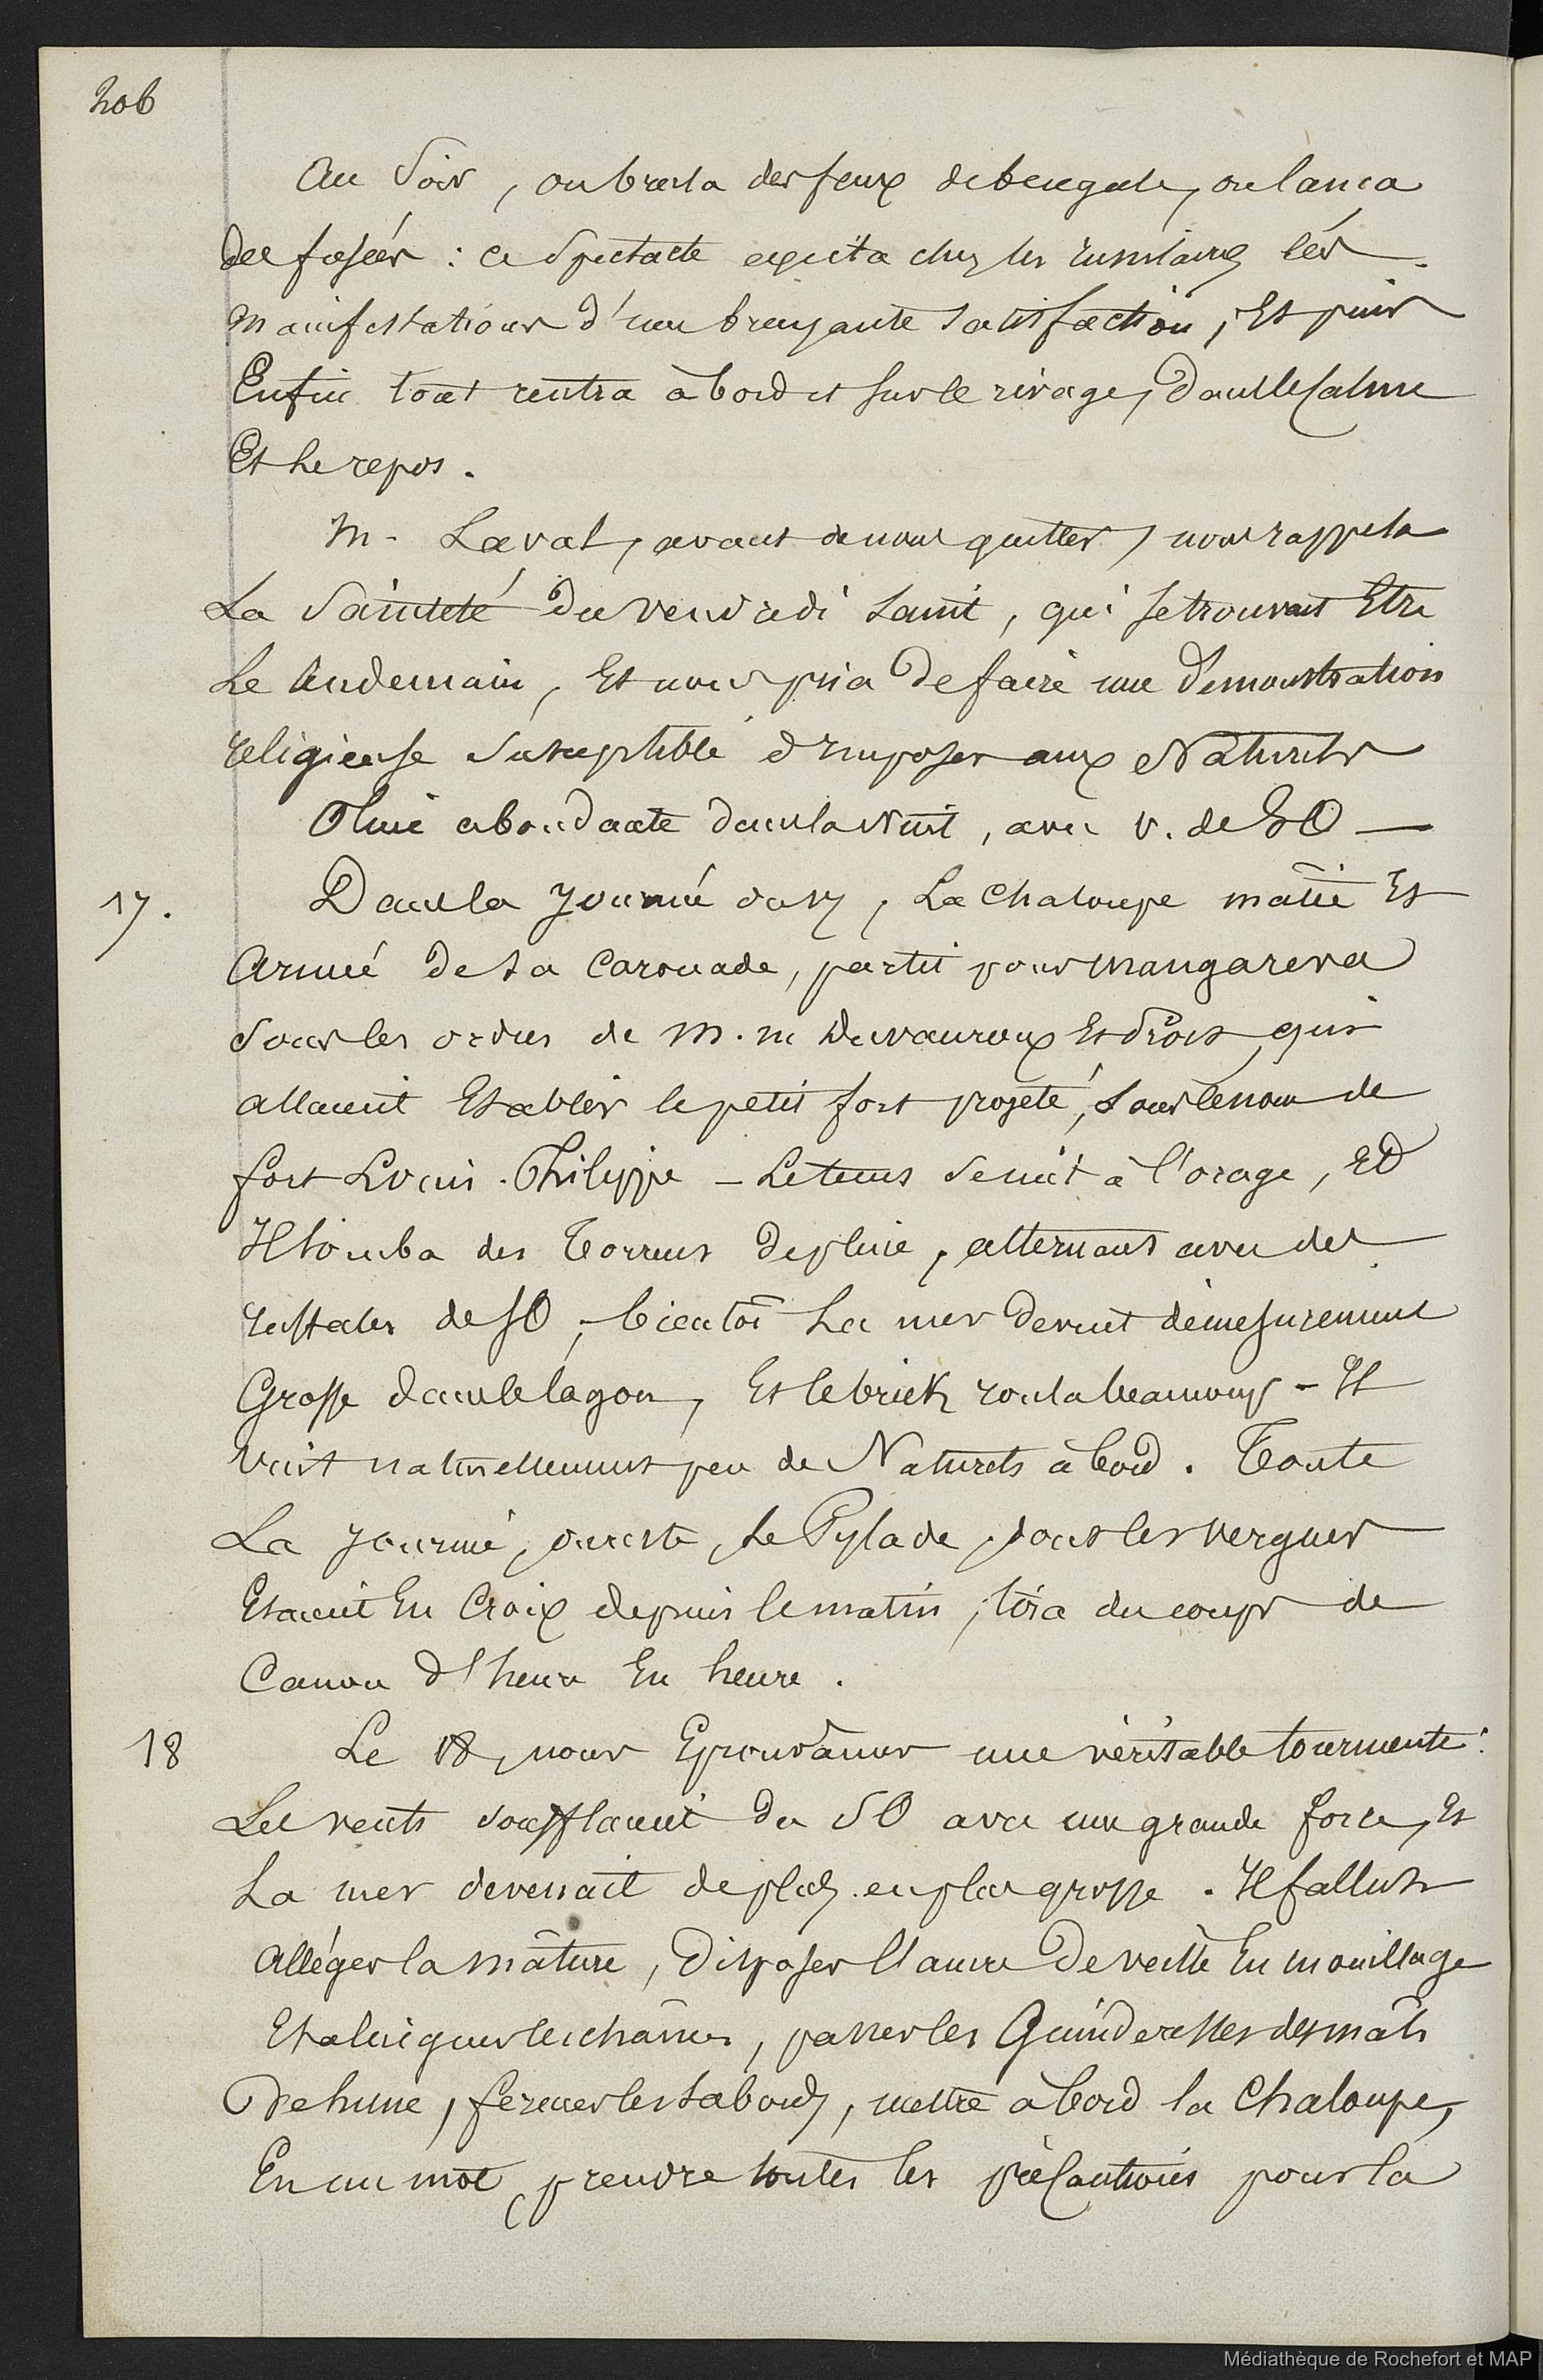 206
Au Soir, on brula des feux de bengale, on lança
des fusées : ce Spectacle excita chez les insulaires les
manifestations d'une bruyante satisfaction ; Et puis
Enfin tout rentra à bord et sur le rivage, dans le Calme
Et le repos.
M. Laval, avant de nous quitter, nous rappela
La Sainteté du vendredi Saint, qui se trouvait Etre
Le lendemain, Et nous pria de faire une Démonstration
religieuse susceptible d'imposer aux Naturels
Pluie abondante dans la Nuit, avec v. de SO —
17. Dans la Journée du 17, La Chaloupe mâtée Et
Armée de sa Caronade, partit pour Mangareva
Sous les ordres de M. m Duvauroux Et qui
allaient Etablir le petit fort projeté, Sous le nom de
fort Louis-Philippe – Le tems se mit à l'orage, Et
Il tomba des Torrens de pluie, alternant avec des
raffales de SO ; – bientôt La mer devint démesurément
Grosse dans le lagon, Et le brick roula beaucoup – Il
Vint naturellement peu de Naturels à bord. Toute
La Journée, du reste, Le Pylade, dont les vergues
Etaient En Croix depuis le matin, tira des coups de
Canon d'heure En heure.
18 Le 18, nous Eprouvâmes une véritable tourmente :
Les vents soufflaient du SO avec une grande force, Et
La mer devenait de plus en plus grosse. Il fallut
Alléger la mâture, Disposer l'ancre De veille En mouillage
Et les chaînes, passer les Guinderesses des mâts
De hune, fermer les Sabords, mettre à bord la Chaloupe,
En un mot, prendre toutes les précautions pour la
Médiathèque de Rochefort et MAP